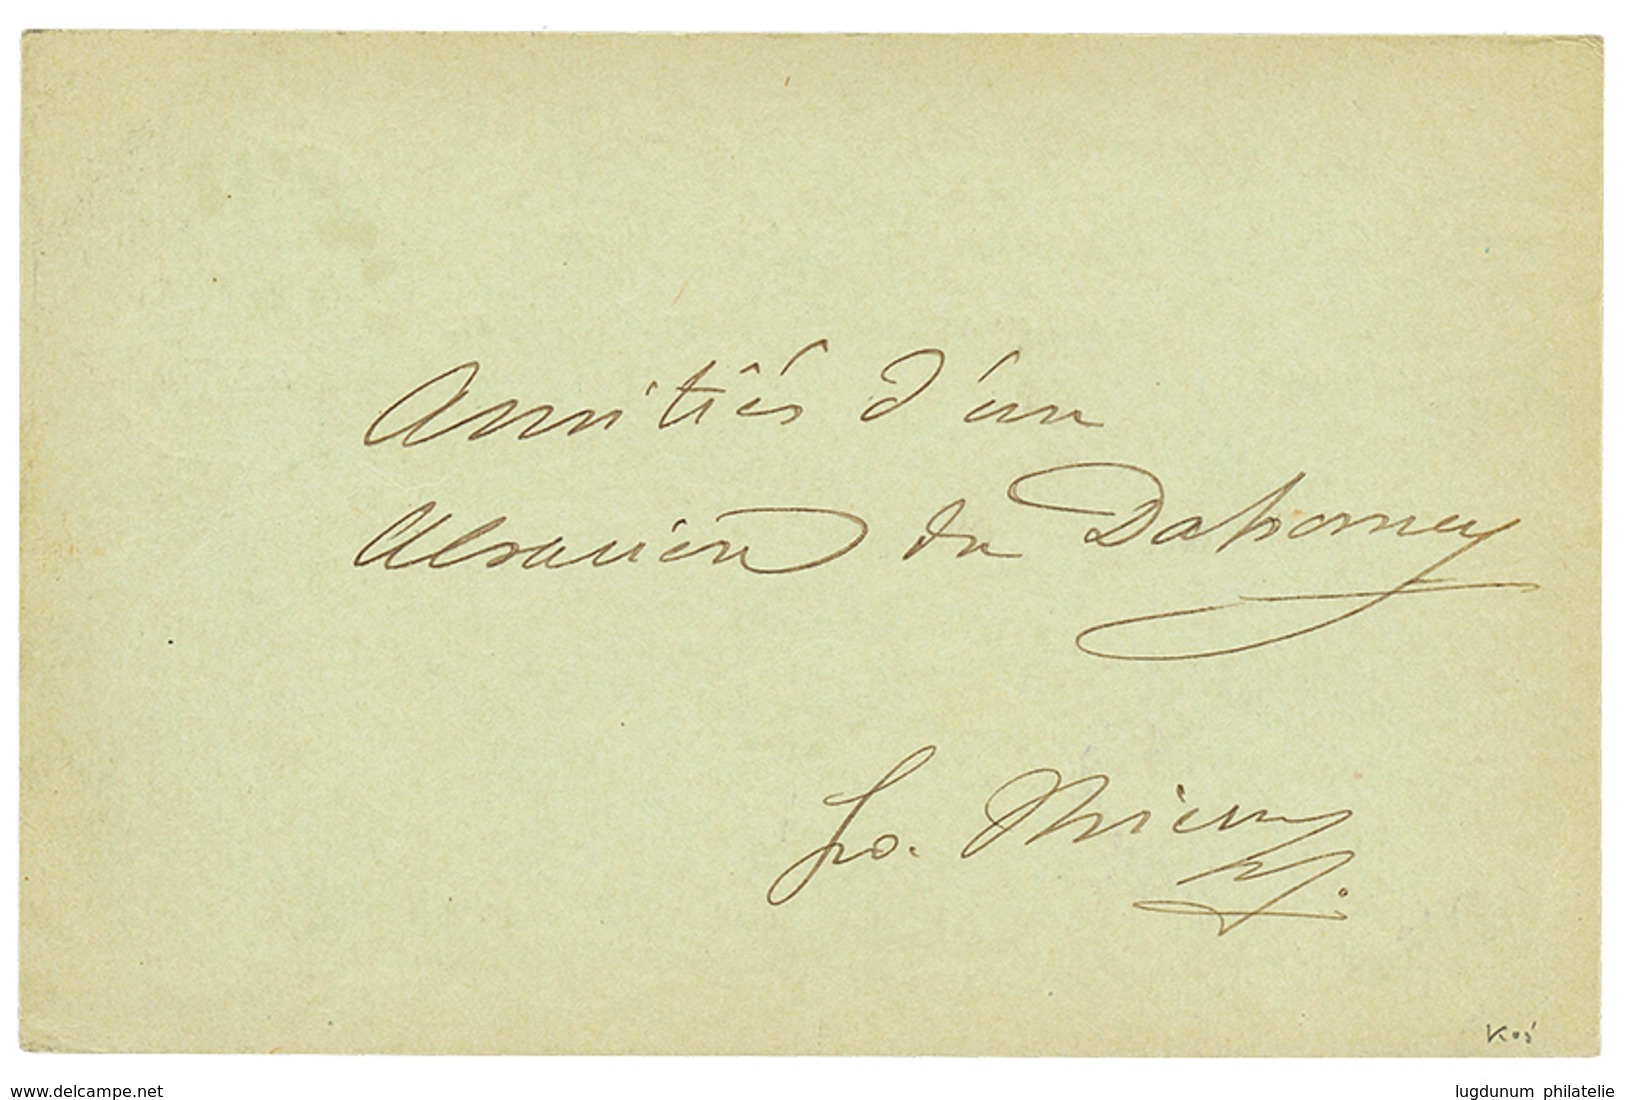 Amitiés d'un
Alsacien du Dahomey
www.delcampe.net
lugdunum philatelie